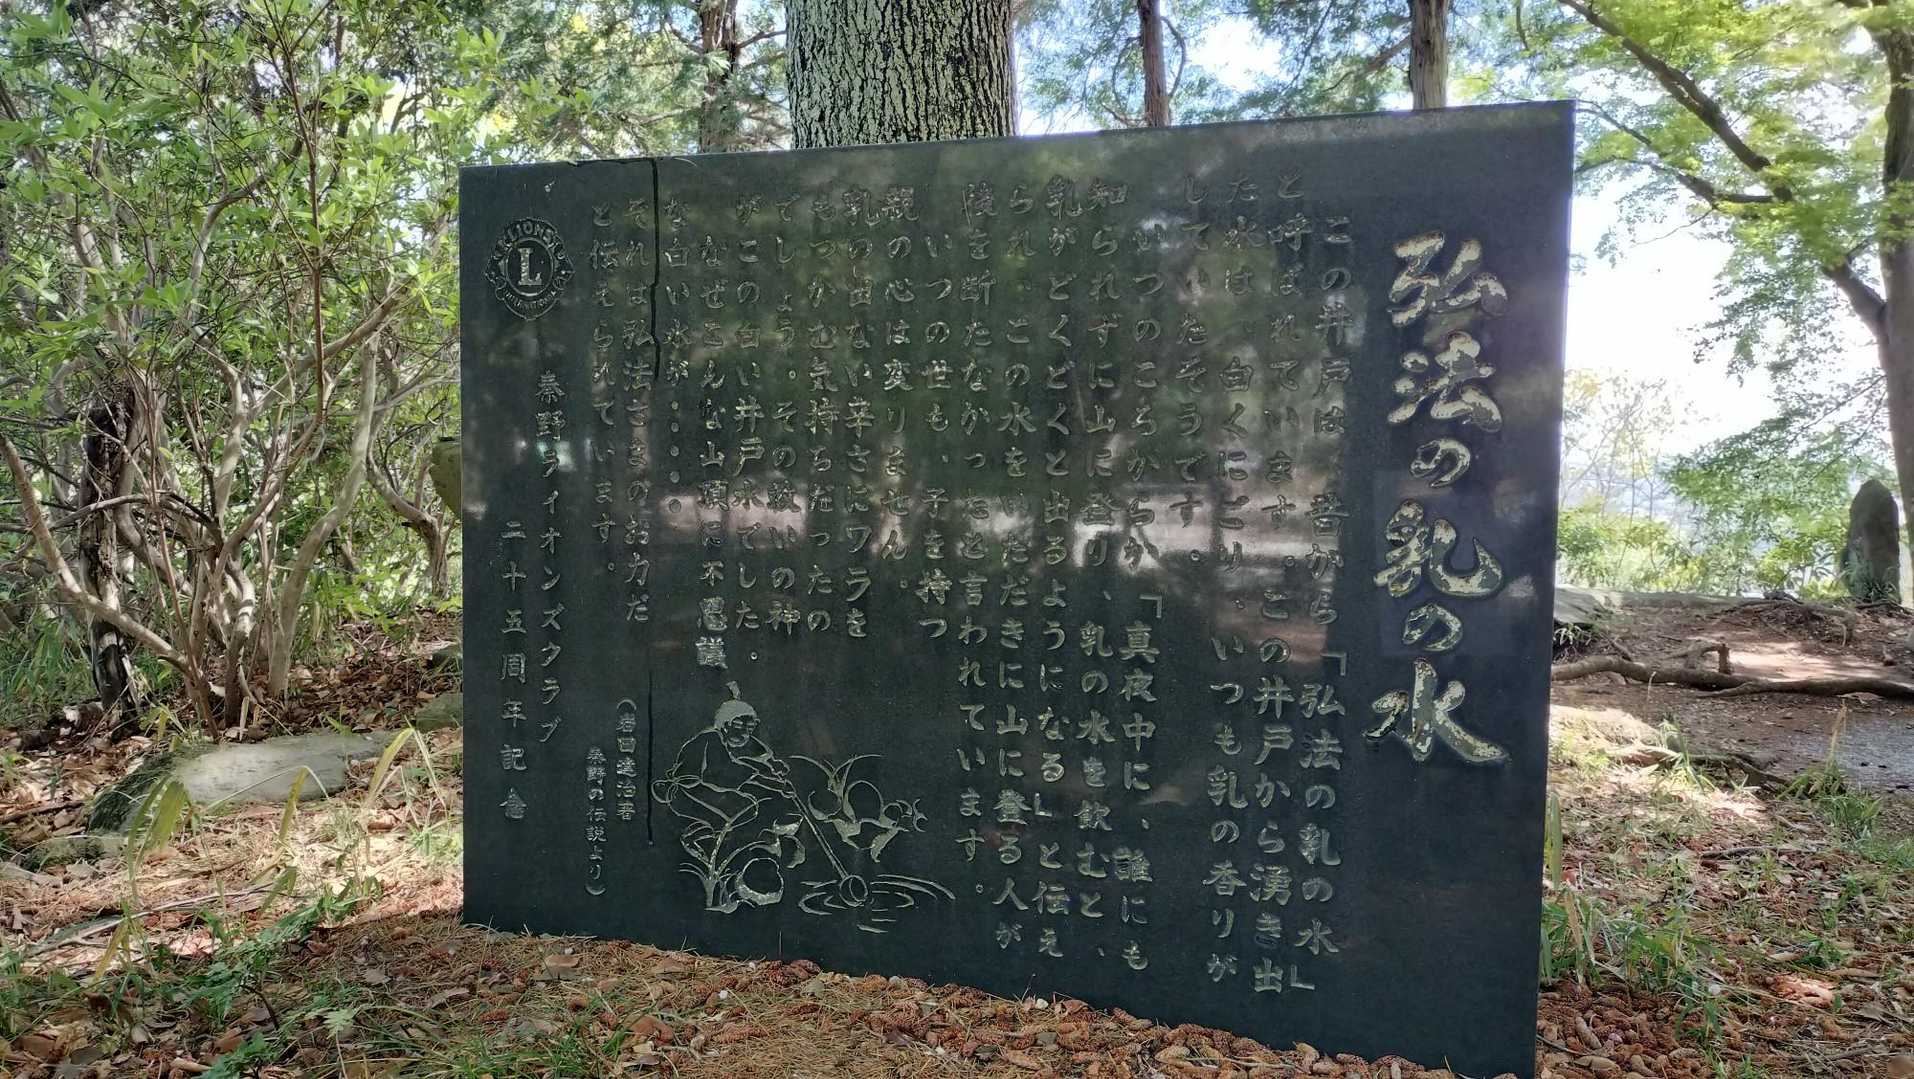 弘法の乳の水
この井戸は、昔から「弘法の乳の水」
と呼ばれています。この井戸から湧き出
た水は、白くにごり、いつも乳の香りが
していたそうです。
いつのころからか「真夜中に、誰にも
知られずに山に登り、乳の水を飲むと、
乳がどくどくと出るようになる」と伝え
られ、この水をいただきに山に登る人が
後を断たなかったと言われています。
いつの世も、子を持つ
親の心は変りません。
乳の出ない辛さにワラを
もつかむ気持ちだったの
でしょう。その救いの神
がこの白い井戸水でした。
なぜこんな山頂に不思議
な白い水が・・・・。
それは弘法さまのお力だ
と伝えられています。
(岩田達治著
秦野の伝説より)
LIONS
L
INTERNATIONAL
秦野ライオンズクラブ
二十五周年記念